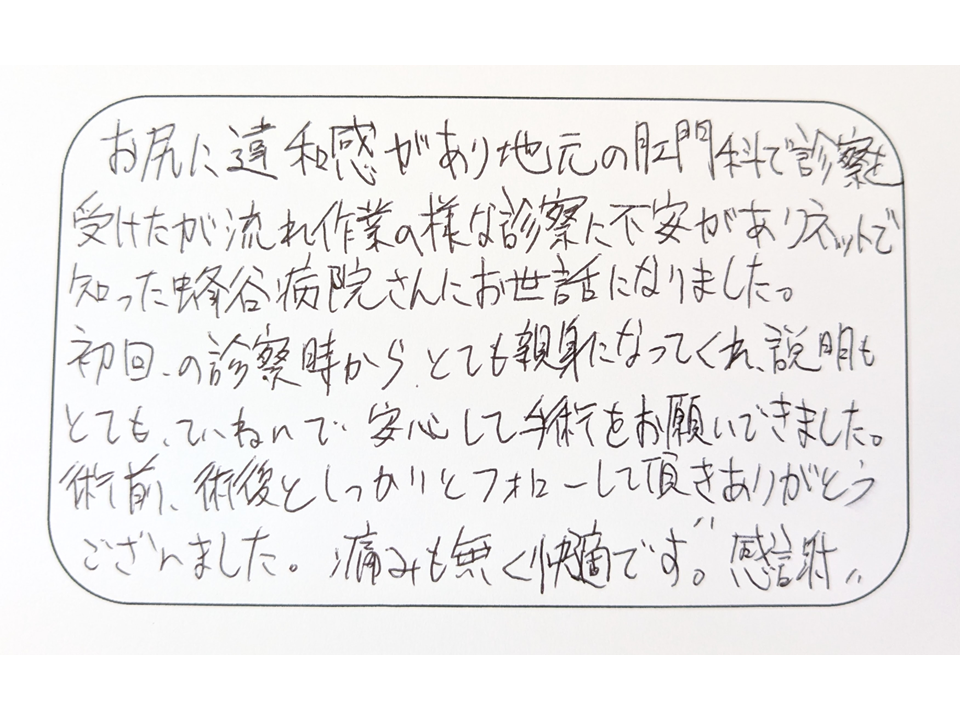 お尻に違和感があり地元の肛門科で診察を
受けたが流れ作業の様な診察に不安がありネットで
知った蜂谷病院さんにお世話になりました。
初回の診察時から、とても親身になってくれ、説明も
とても、ていねいで安心して手術をお願いできました。
術前、術後としっかりとフォローして頂きありがとう
ございました。痛みも無く快適です。〃感謝〃